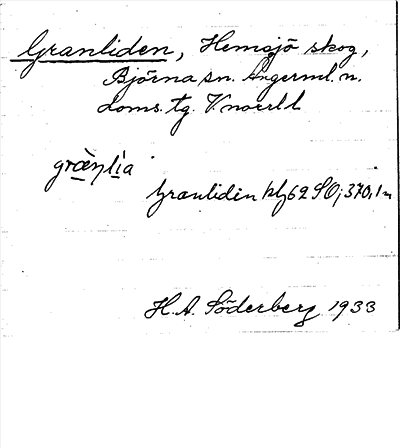 Granliden, Hemsjö skog,
Björna sn. Ångerml. n.
doms. tg. V
græ̀nlìa
Granliden 62 SO; 370,1 m
H. A. Söderberg 1933